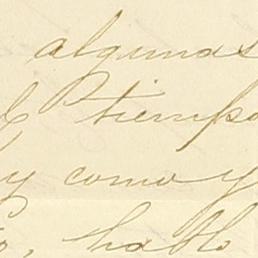 algunas
tiempo
y como y
, hablo